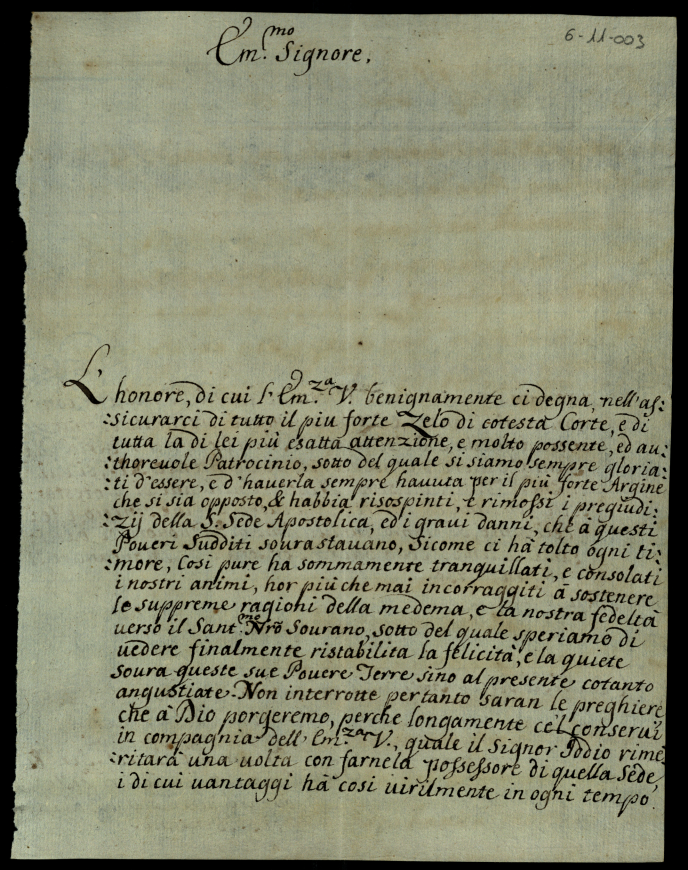 6-11-003
Em.mo Signore.
L'honore, di cui l'Em.za V. benignamente ci degna, nell'as:
:sicurarci di tutto il piu forte Zelo di cotesta Corte, e di
tutta la di lei più esatta attenzione, e molto possente, ed au:
:thorevole Patrocinio, sotto del quale si siamo sempre gloria:
:ti d'essere, e d'haverla sempre havuta per il più forte Argine
che si sia opposto, & habbia risospinti, e rimossi i pregiudi:
:zij della S. Sede Apostolica, ed i gravi danni, che à questi
Poveri Sudditi sourastavano, Sicome ci hà tolto ogni ti:
:more, Cosi pure ha sommamente tranquillati, e consolati
i nostri animi, hor più che mai incorraggiti à sostenere
le suppreme ragioni della medema, e la nostra fedeltà
verso il Sant.mo Nro Sourano, sotto del quale speriamo di
vedere finalmente ristabilita la felicità, e la quiete
soura queste sue Povere Terre sino al presente cotanto
angustiate. Non interrotte per tanto saran le preghiere
che à Dio porgeremo, perche longamente cel conservi
in compagnia dell'Em.za V., quale il Signor Iddio rime:
:ritarà una volta con farnela possessore di quella Sede
i di cui vantaggi hà cosi virilmente in ogni tempo